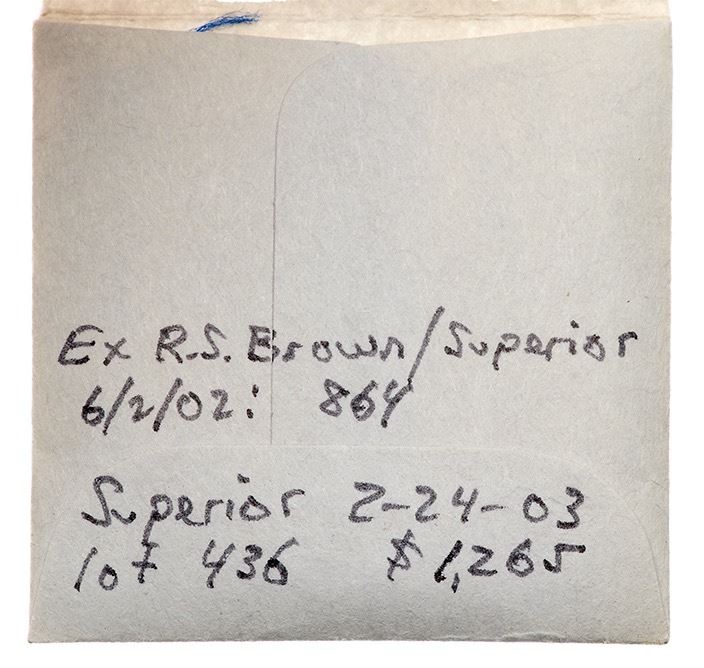 Ex R.S. Brown/Superior
6/2/02: 864
Superior 2-24-03
lot 436 $1,265